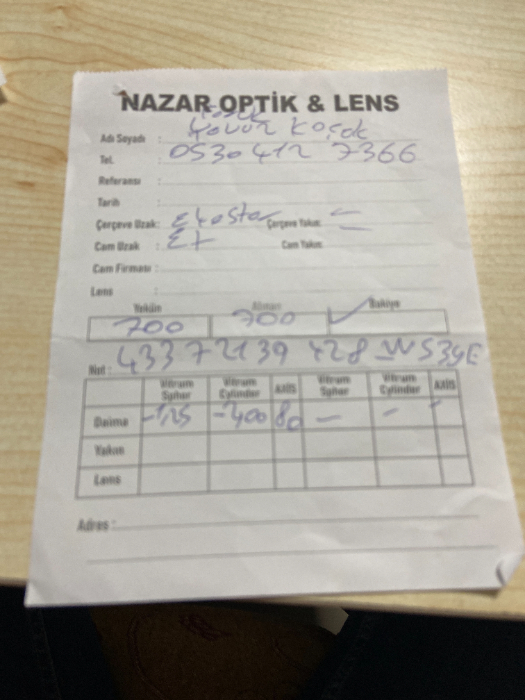 NAZAR OPTİK & LENS
Adı Soyadı : Yavuz Koçak
Tel. : 0530 412 7366
Referansı :
Tarih :
Çerçeve Uzak: Ekosta Çerçeve Yakın: —
Cam Uzak : Et Cam Yakın: —
Cam Firması :
Lens :
Yekün Alınan Bakiye
700 700 ✓
Not : 43372139 428
Vitrum Spher Vitrum Cylinder AXİS Vitrum Spher Vitrum Cylinder AXİS
Daima -125 -400 80 — — -
Yakın
Lens
Adres :